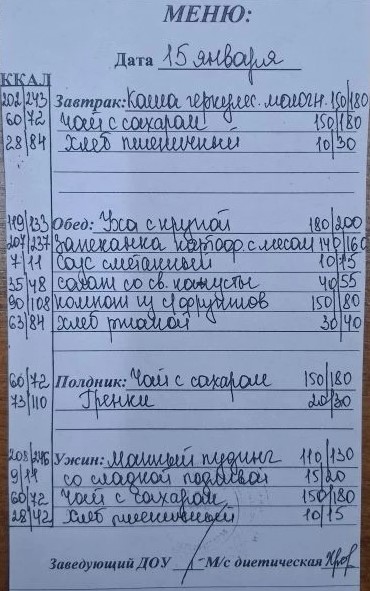 МЕНЮ:
Дата 15 января
ККАЛ
202/243 Завтрак: Каша геркулес. молочн. 150/180
60/72 Чай с сахаром 150/180
28/84 Хлеб пшеничный 10/30
119/133 Обед: Уха с крупой 180/200
207/237 Запеканка картоф. с мясом 140/160
7/11 Соус сметанный 10/15
35/48 салат со св. капусты 40/55
90/108 компот из с/фруктов 150/180
63/84 Хлеб ржаной 30/40
60/72 Полдник: Чай с сахаром 150/180
73/110 Гренки 20/30
208/246 Ужин: манный пудинг 110/130
9/11 со сладкой подливой 15/20
60/72 Чай с сахаром 150/180
28/42 Хлеб пшеничный 10/15
Заведующий ДОУ М/с диетическая